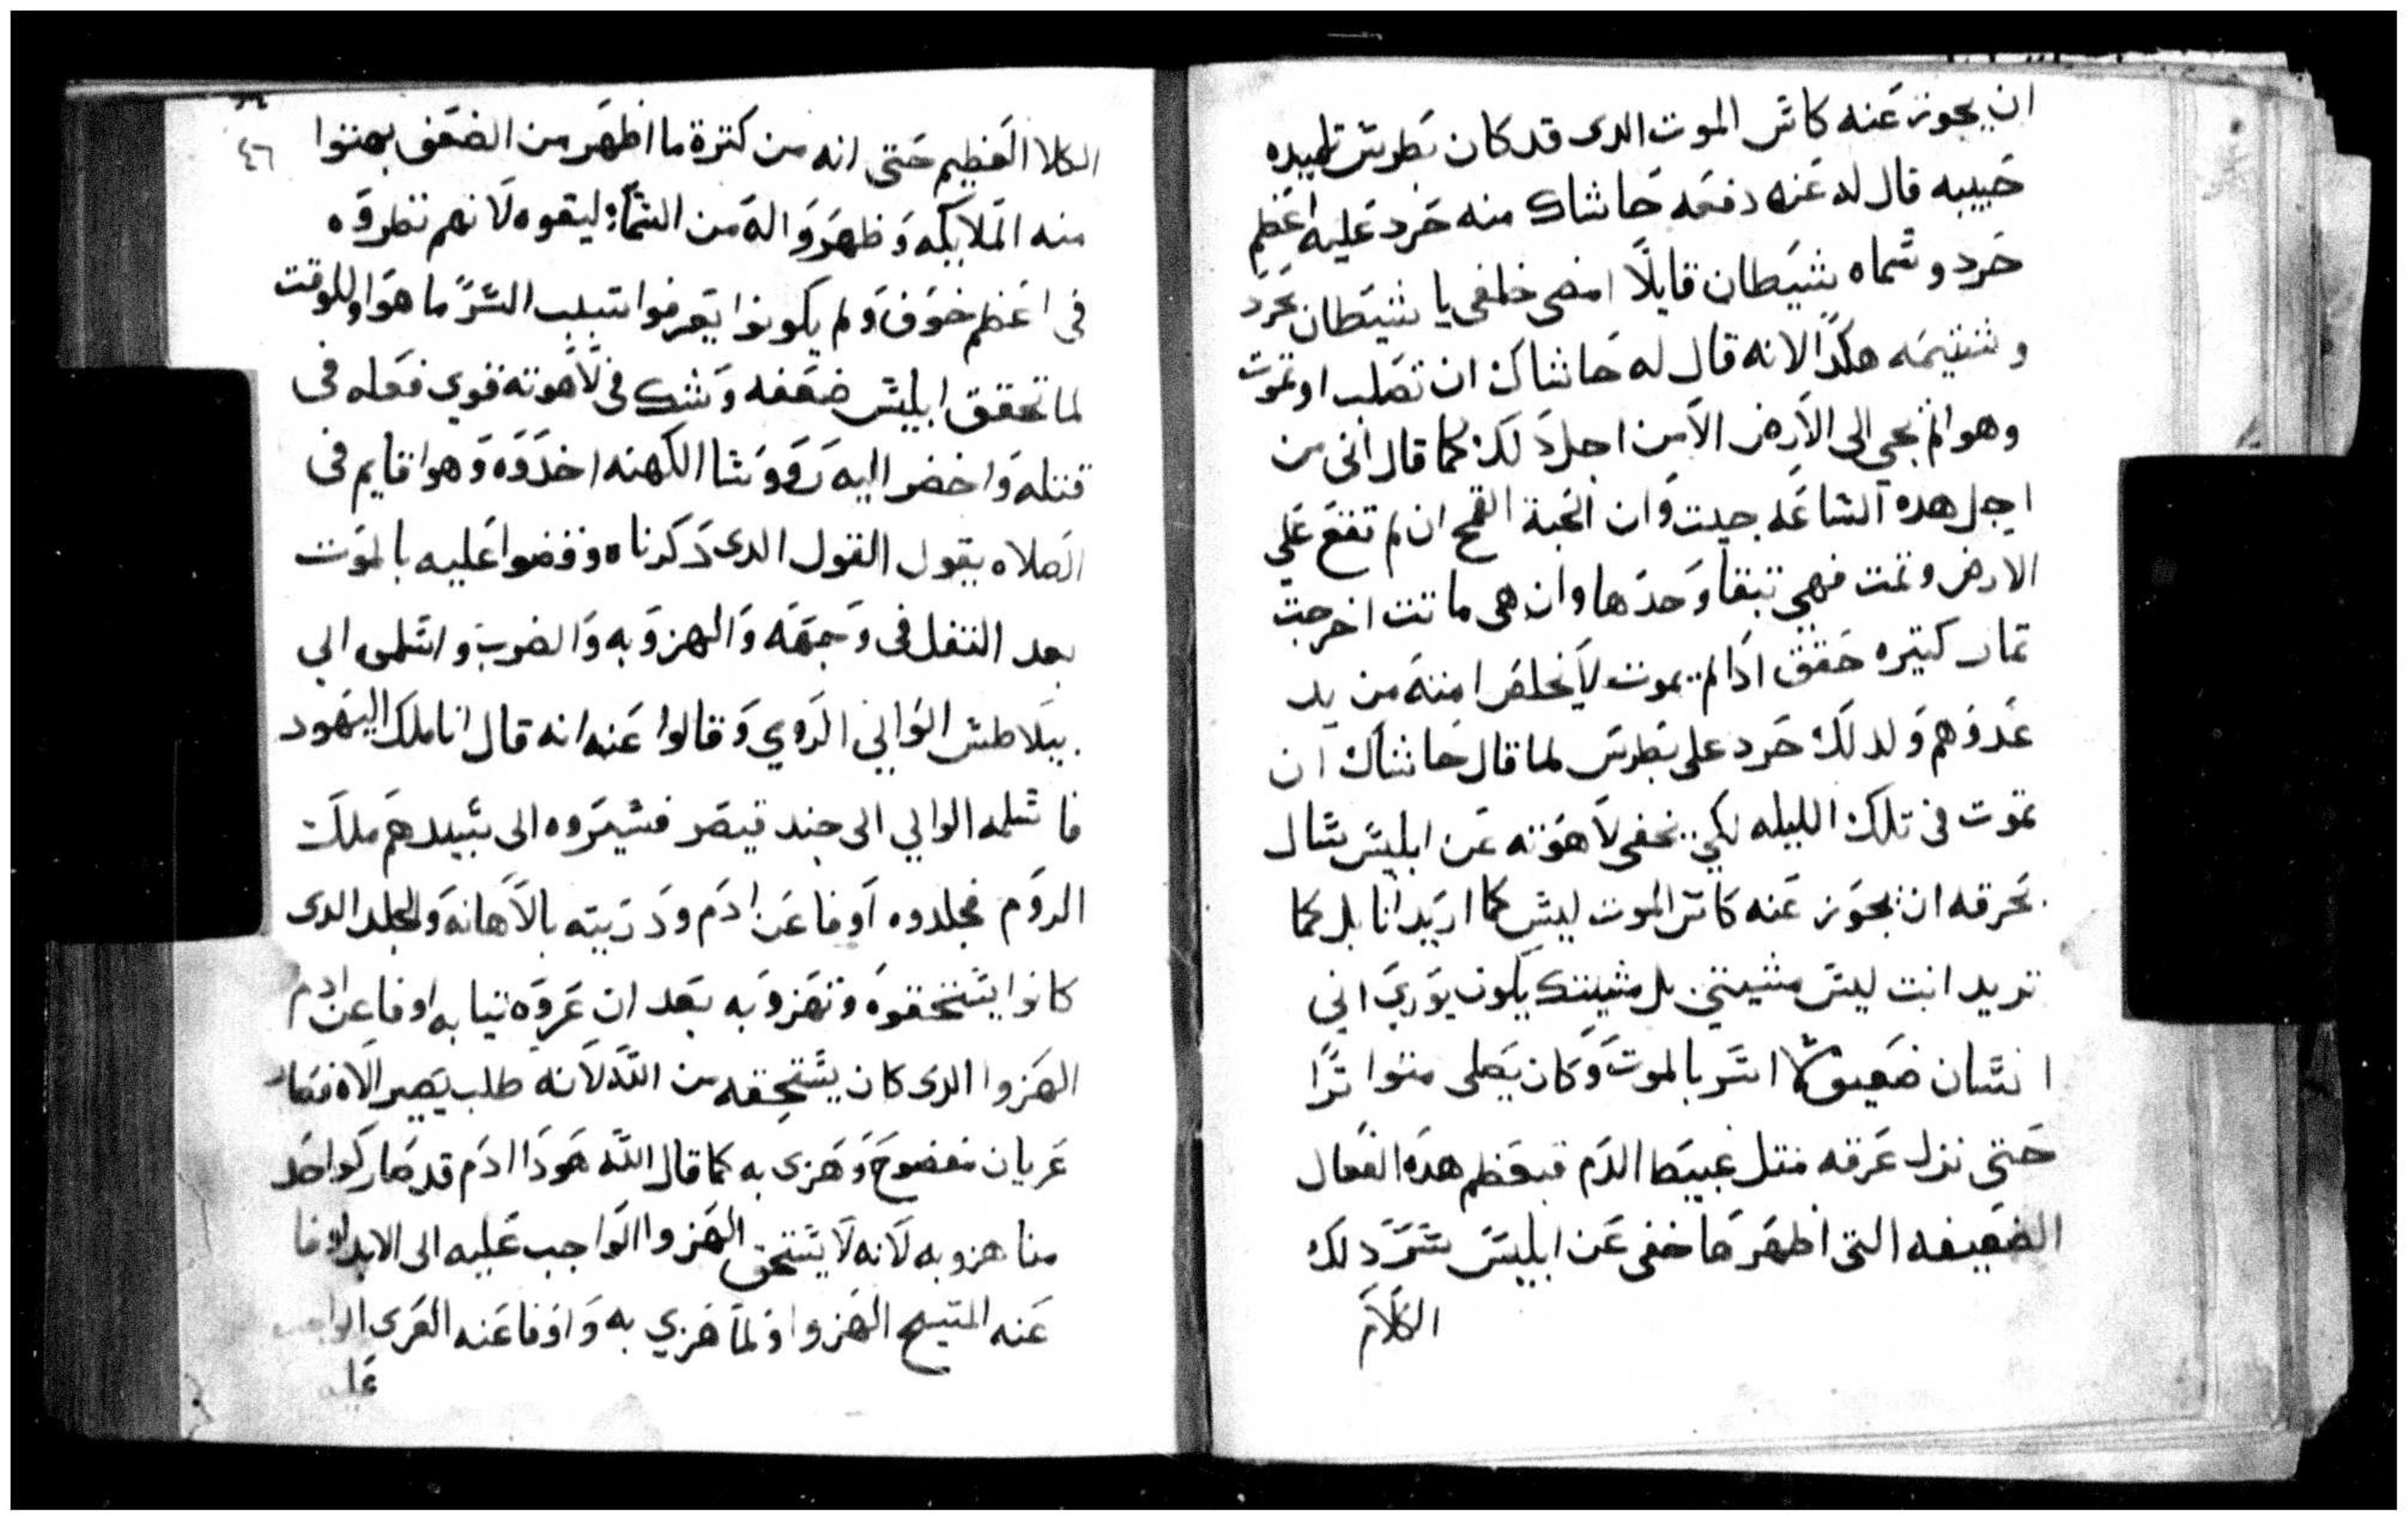 ان يجوز عنه كاس الموت الدى قد كان بطرس تلميده
حبيبه قال له عنه دفعه حاشاك منه حرد عليه اعظم
حرد وسماه شيطان قايلا امضى خلفى يا شيطان بحرد
وشتيمه هكدا لانه قال له حاشاك ان تصلب او تموت
وهو لم يجي الى الارض الا من اجل دلك كما قال انى من
اجل هده الساعه جيت وان الحبة القمح ان لم تقع علي
الارض وتمت فهي تبقا وحدها وان هى ماتت اخرجت
تمار كتيره حقق ادا لم يموت لا يخلص امته من يد
عدوهم ولدلك حرد على بطرس لما قال حاشاك ان
تموت فى تلك الليله لكي يخفى لاهوته عن ابليس سال
بحرقه ان يجوز عنه كاس الموت ليس كما اريد انا بل كما
تريد انت ليس مشيتي بل مشيتك يكون يوري انى
انسان ضعيف لما اسر بالموت وكان يصلى متواترا
حتى نزل عرقه متل عبيط الدم فبعظم هده الفعال
الضعيفه التى اظهرها خفى عن ابليس سر دلك
الكلام
٤٦
الكلا العظيم حتى انه من كترة ما اظهر من الضعف بهتوا
منه الملايكه وظهروا له من السماء ليقوه لانهم نظروه
فى اعظم خوف ولم يكونوا يعرفوا سبب السر ما هوا وللوقت
لما تحقق ابليس ضعفه وشك فى لاهوته قوي فعله فى
قتله واحضر اليه رووسا الكهنه اخدوه وهوا قايم فى
الصلاه يقول القول الدى دكرناه وقضوا عليه بالموت
بعد التفل فى وجهه والهزو به والضرب واسلموه الي
بيلاطس الوالي الروي وقالوا عنه انه قال انا ملك اليهود
فاسلمه الوالي الى جند قيصر فسيروه الى سيدهم ملك
الروم فجلدوه اوفا عن ادم ودريته بالاهانه والجلد الدى
كانوا يستحقوه وتهزو به بعد ان عروه تيابه اوفا عن ادم
الهزوا الدى كان يستحقه من الله لانه طلب يصير الاه فصار
عريان مفضوح وهزى به كما قال الله هودا ادم قد صار كواحد
منا هزو به لانه لا يستحق الهزوا الواجب عليه الى الابد اوفا
عنه المسيح الهزوا ولما هزي به واوفا عنه العرى الواجب
عليه